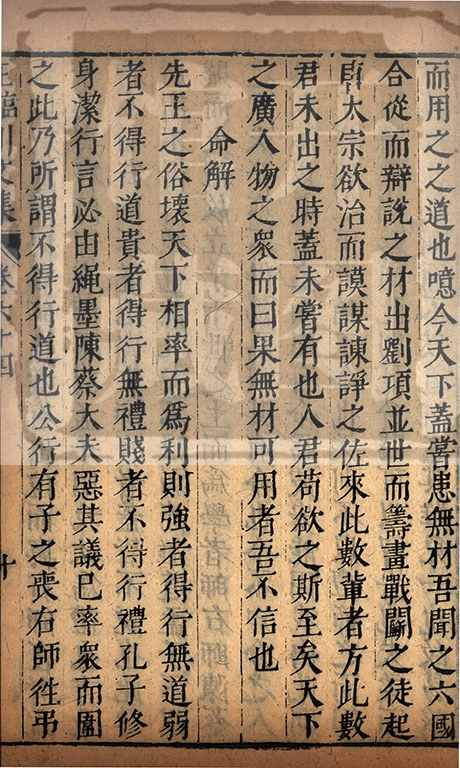 而用之之道也噫今天下蓋嘗患無材吾聞之六國
合從而辯說之材出劉項並世而籌畫戰鬭之徒起
唐太宗欲治而謨謀諫諍之佐來此數輩者方此數
君未出之時蓋未嘗有也人君苟欲之斯至矣天下
之廣人物之衆而曰果無材可用者吾不信也
命解
先王之俗壞天下相率而爲利則強者得行無道弱
者不得行道貴者得行無禮賤者不得行禮孔子修
身潔行言必由繩墨陳蔡大夫惡其議已率衆而圍
之此乃所謂不得行道也公行有子之喪右師徃弔
王臨川文集 卷六十四 十